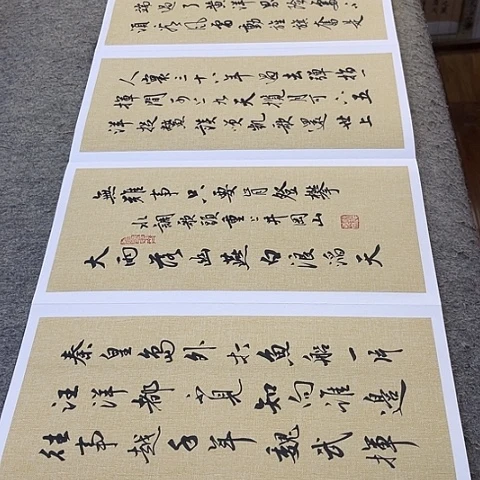 過了黃洋界險處不
須看風雷動旌旗奮是
人寰三十八年過去彈指一
揮間可上九天攬月可下五
洋捉鱉談笑凱歌還世上
無難事只要肯登攀
水調歌頭重上井岡山
大雨落幽燕白浪滔天
秦皇島外打魚船一片
汪洋都不見知向誰邊
往事越千年魏武揮